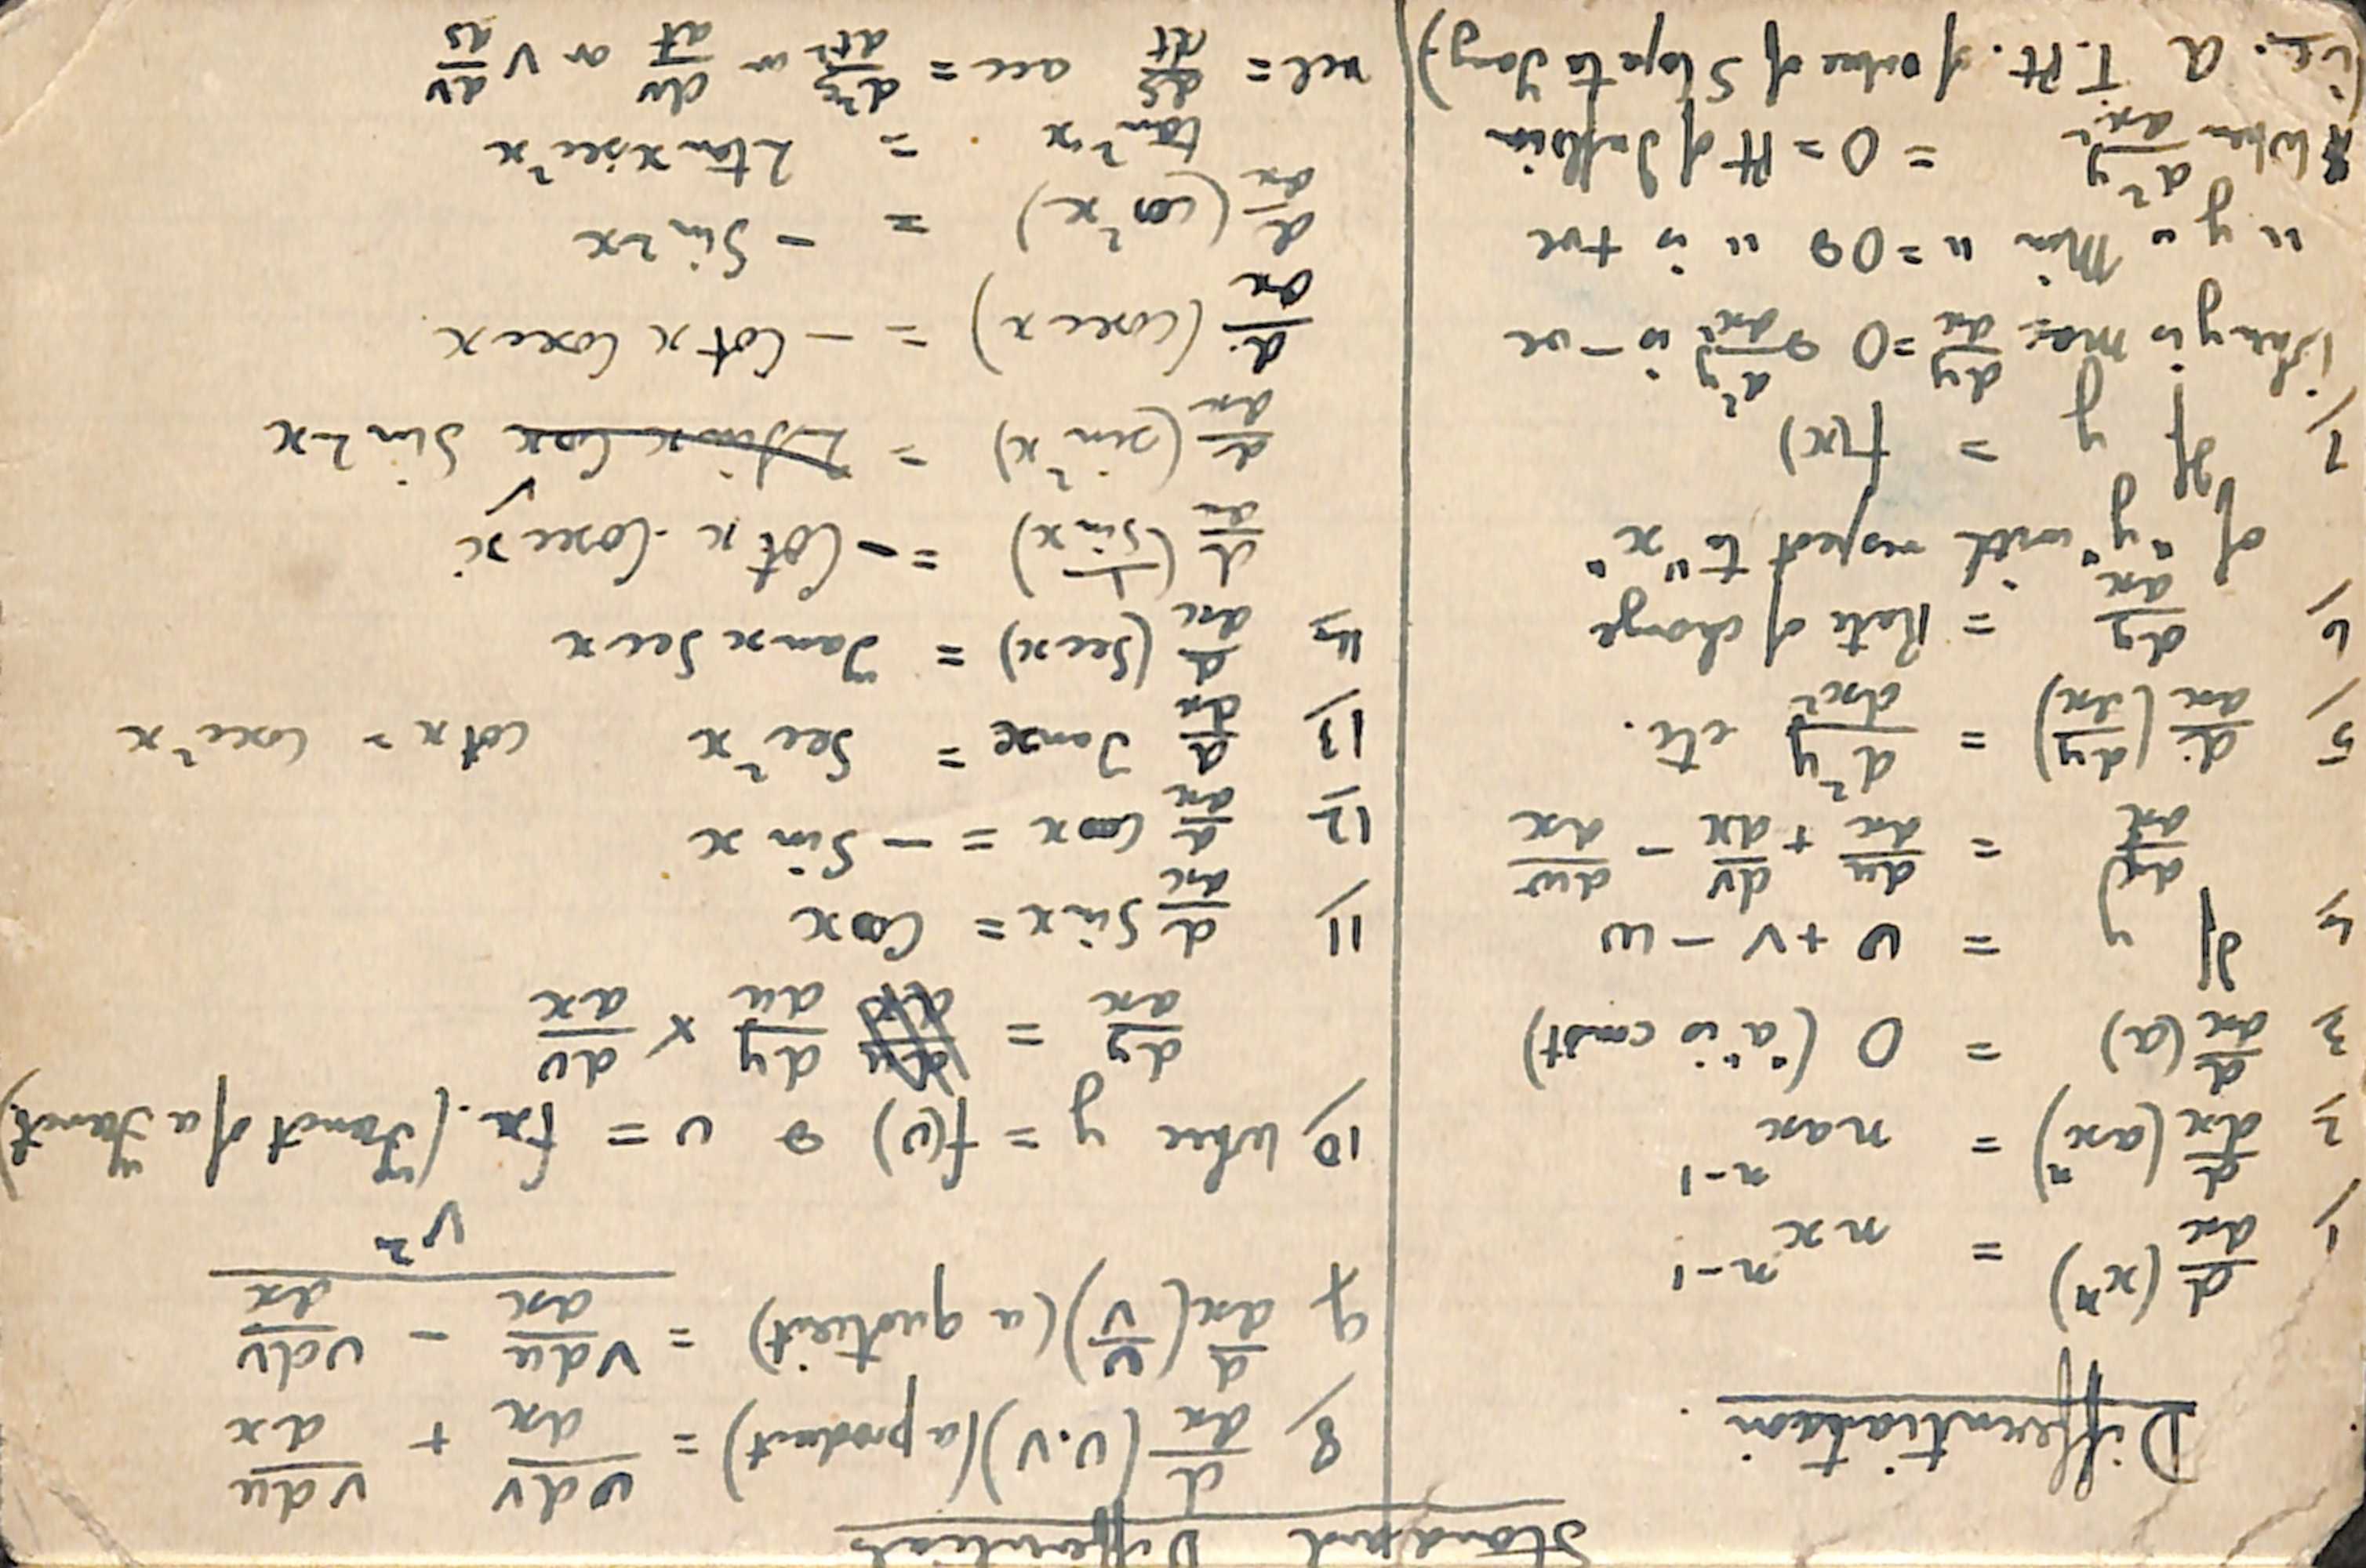 Standard Differentials
Differentiation.
1/ d/dx (xⁿ) = nxⁿ⁻¹
2/ d/dx (axⁿ) = naxⁿ⁻¹
3/ d/dx (a) = 0 ("a" is const)
4/ If y = u + v - w
dy/dx = du/dx + dv/dx - dw/dx
5/ d/dx (dy/dx) = d²y/dx² etc.
6/ dy/dx = Rate of change
of "y" with respect to "x"
7/ If y = f(x)
then y is max dy/dx = 0 & d²y/dx² is -ve
" y " Min " = 0 & " is +ve
* When d²y/dx² = 0 = Pt of Inflxin
(i.e. a T. Pt. of value of Slope to
8/ d/dx (u.v) (a product) = udv/dx + vdu/dx
9/ d/dx (u/v) (a quotient) = (vdu/dx - udv/dx)/v²
10/ When y = f(u) & u = fx. (Funct of a Funct)
dy/dx = dy/du × du/dx
11/ d/dx Sin x = Cos x
12/ d/dx Cos x = - Sin x
13/ d/dx Tan x = Sec² x cot x = Cosec² x
14/ d/dx (Sec x) = Tan x Sec x
d/dx (1/Sin x) = - Cot x . Cosec x
d/dx (sin² x) = 2 Sin x Cos x Sin 2x
d/dx (cosec x) = - Cot x Cosec x
d/dx (cos² x) = - Sin 2x
tan² x = 2 tan x sec² x
vel = ds/dt acc = d²s/dt² or dv/dt or v dv/ds